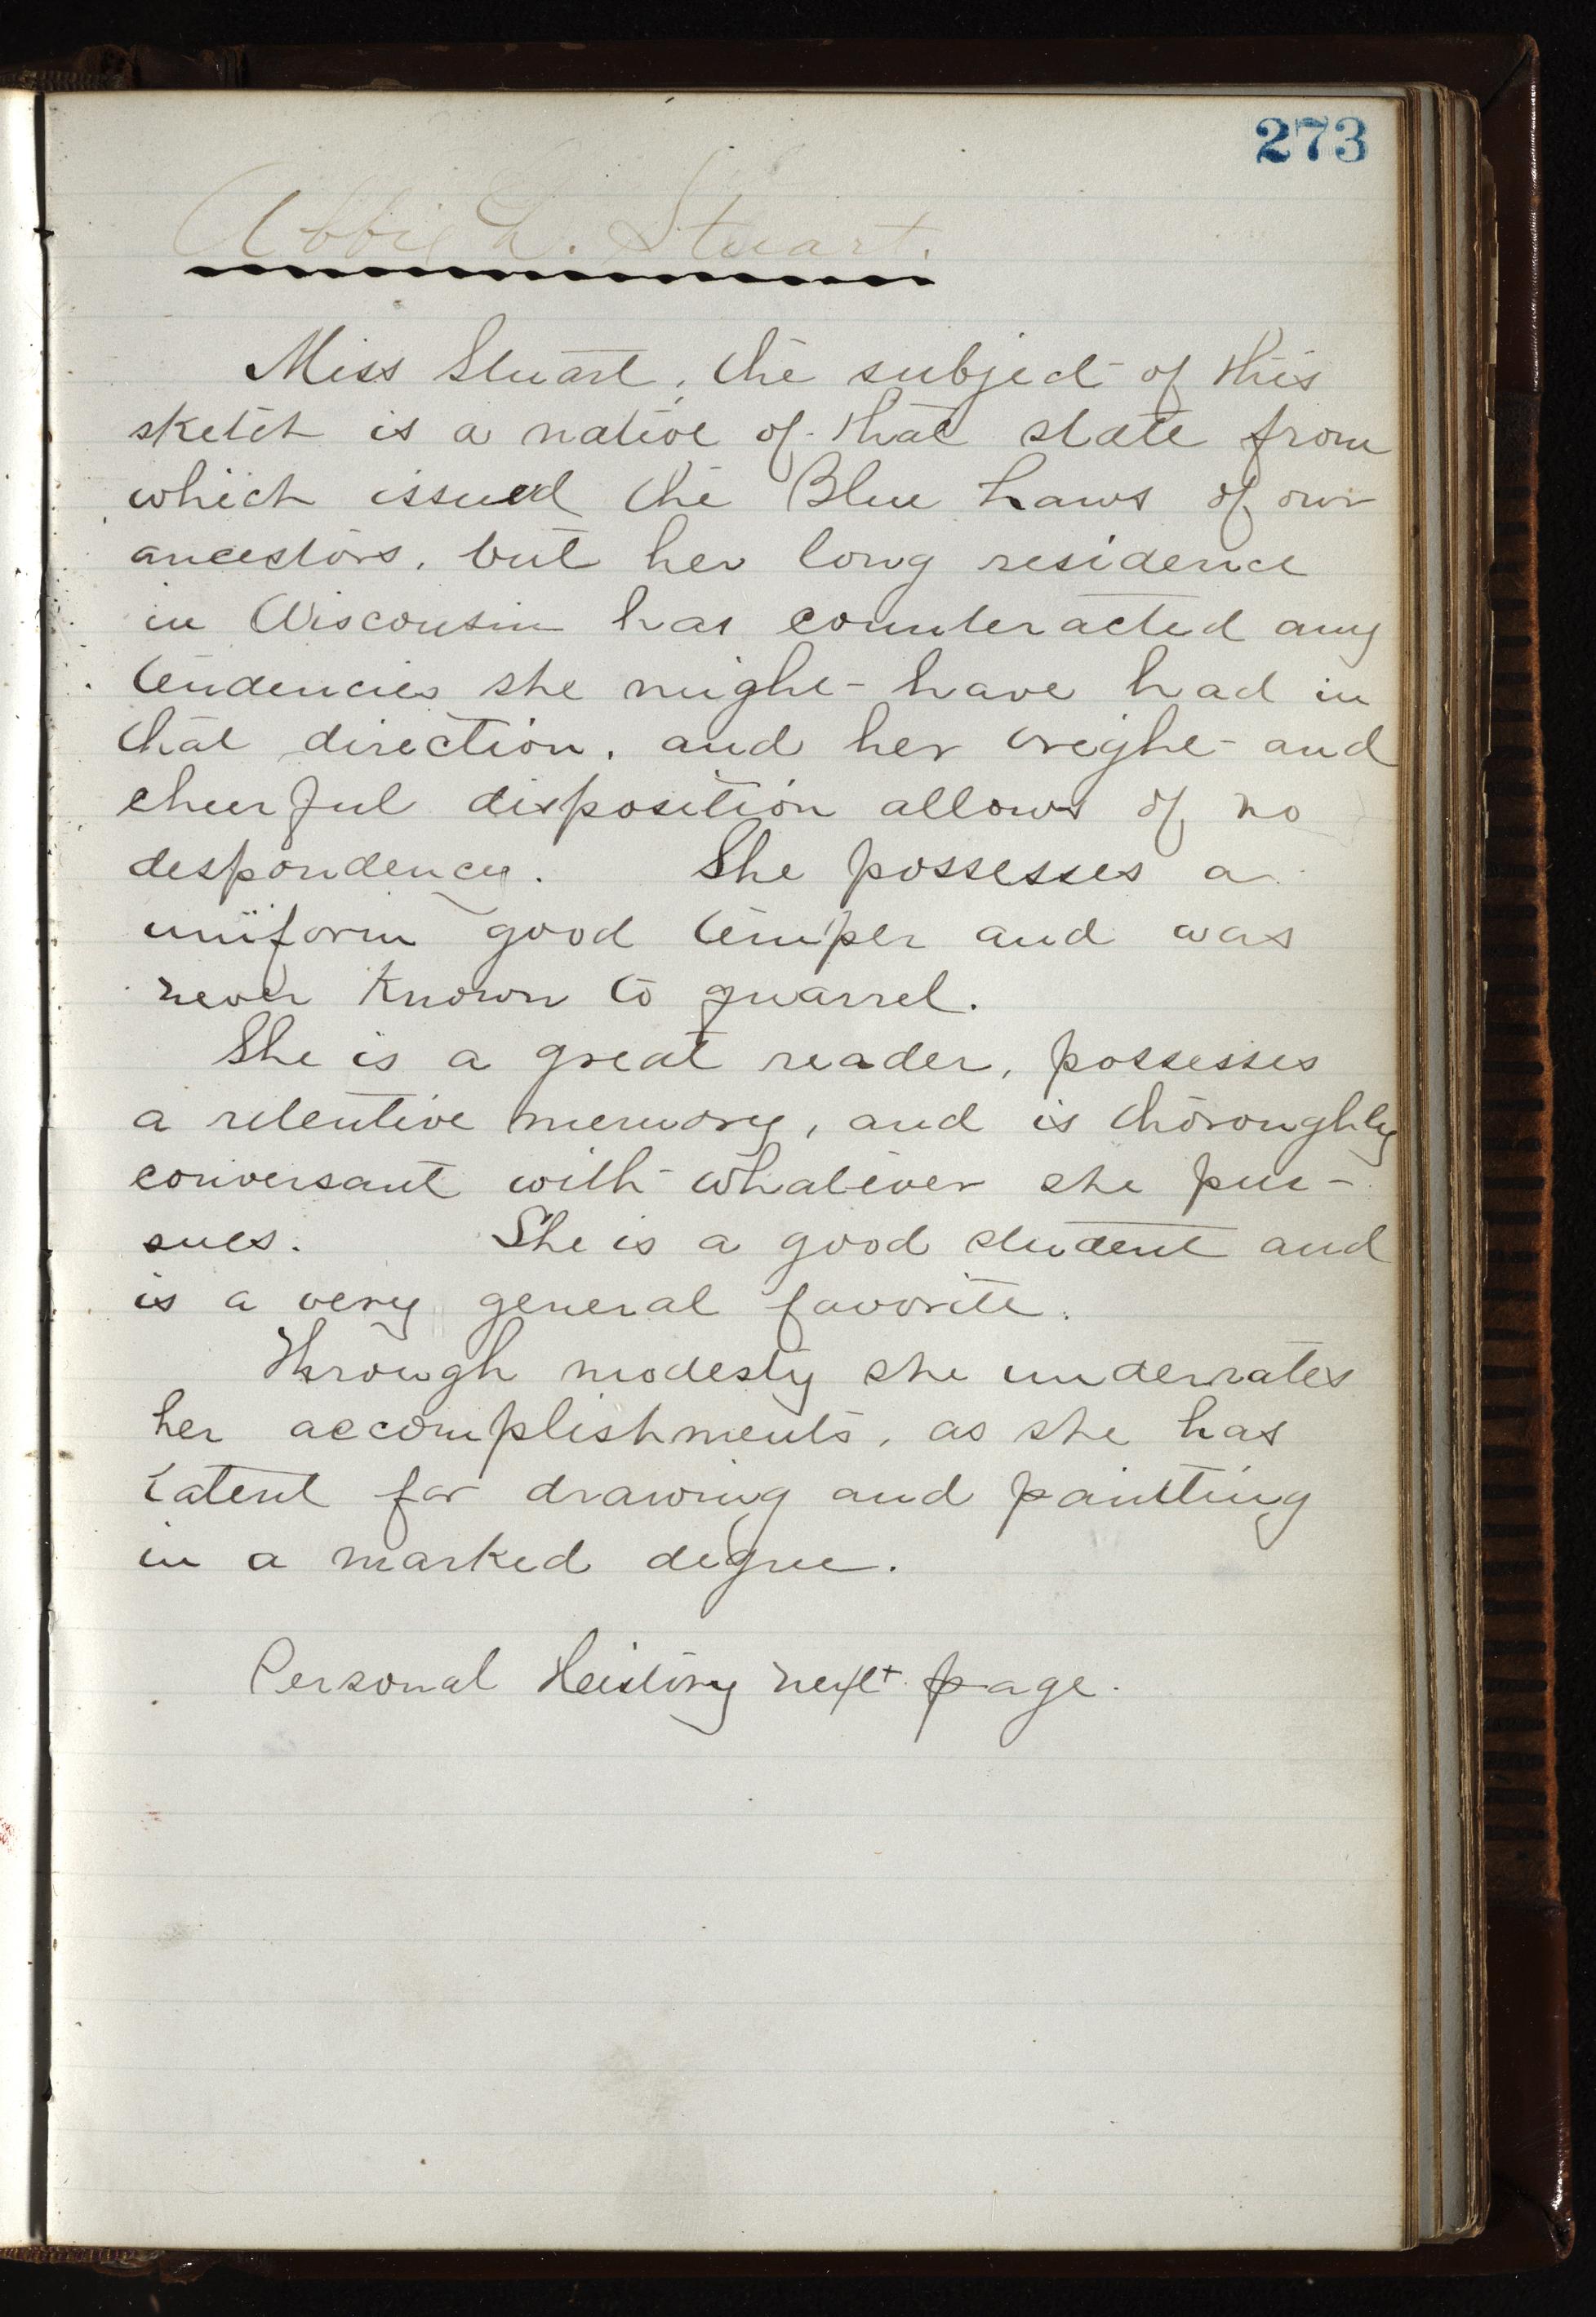 273
Abbie L. Stuart.
Miss Stuart, the subject of this
sketch is a native of that state from
which issued the Blue Laws of our
ancestors, but her long residence
in Wisconsin has counteracted any
tendencies she might have had in
that direction, and her bright and
cheerful disposition allows of no
despondency. She possesses a
uniform good temper and was
never known to quarrel.
She is a great reader, possesses
a retentive memory, and is thoroughly
conversant with whatever she pur-
sues. She is a good student and
is a very general favorite.
Through modesty she underrates
her accomplishments, as she has
talent for drawing and painting
in a marked degree.
Personal History next page.